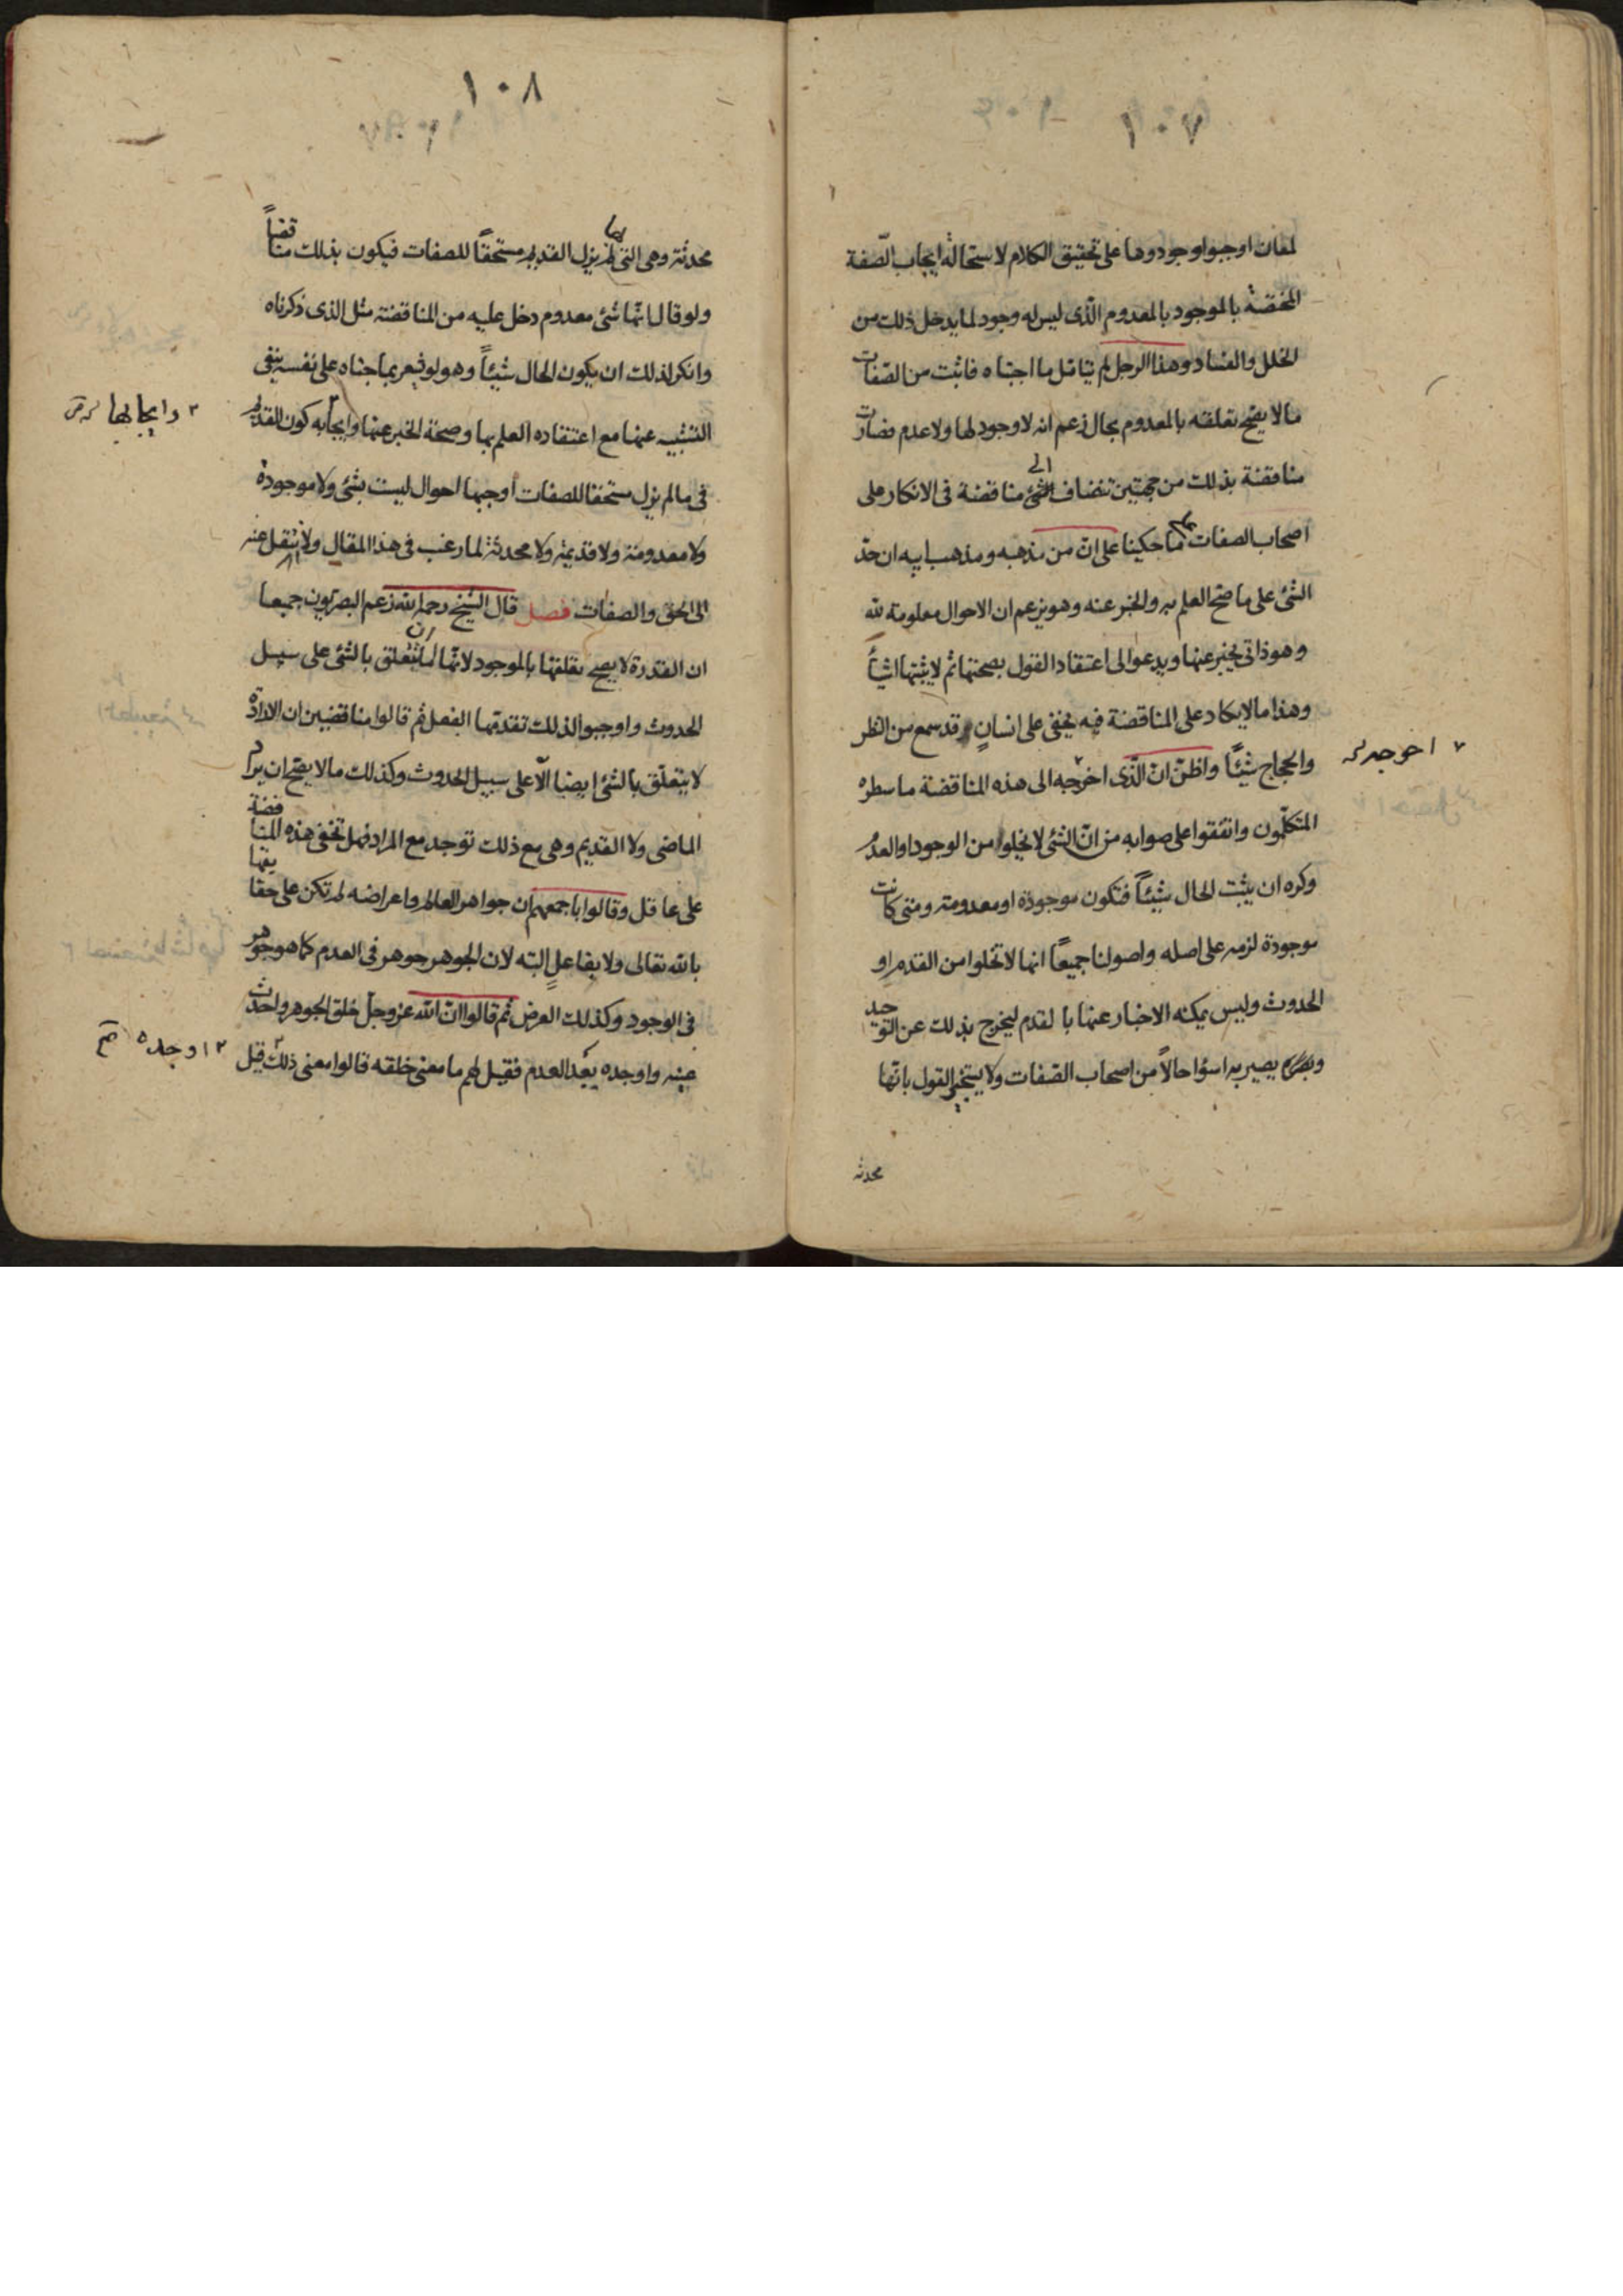 ١٠٧
لمعان اوجبوا وجودها على تحقيق الكلام لاستحالة ايجاب الصّفة
المختصّة بالموجود بالمعدوم الّذى ليس له وجود لما يدخل ذلك من
الخلل والفساد وهذا الرجل لم يتامّل ما اجتباه فاثبت من الصّفات
ما لا يصّح تعلقه بالمعدوم بحال زعم انه لا وجود لها ولا عدم فصارت
مناقضة بذلك من جهتين تنضاف الى مناقضة فى الانكار على
اصحاب الصفات بما حكيناه على انّ من مذهبه ومذهب ابيه ان حدّ
الشئ على ما صّح العلم به والخبر عنه وهو يزعم ان الاحوال معلومة لله
وهو ذاتى يخبر عنها ويدعوا الى اعتقاد القول بصحتها ثم لا يثبتها اشيأً
وهذا ما لا يكاد على المناقضة فيه يخفى على انسانٍ قد سمع من النظر
والحجاج شيئاً واظنّ انّ الّذى اخرجه الى هذه المناقضة ما سطره
٧ احوجه
المتكلّمون واتّفقوا على صوابه من انّ الشئ لا يخلوا من الوجود او العدم
وكره ان يثبت الحال شيئاً فتكون موجودة او معدومة ومتى كانت
موجودة لزمه على اصله واصولنا جميعاً انها لا تخلوا من القدم او
الحدوث وليس يمكنه الاخبار عنها بالقدم ليخرج بذلك عن التوحيد
ويصير به اسؤا حالاً من اصحاب الصّفات ولا يستجيز القول بانّها
محدثه
١٠٨
محدثة وهى التى بها لم يزل القديم مستحقاً للصفات فيكون بذلك مناقضاً
ولو قال انّها شئ معدوم دخل عليه من المناقضة مثل الذى ذكرناه
وانكر لذلك ان يكون الحال شيئاً وهو لو شعر بما جناه على نفسه ينفى
الشيئية عنها مع اعتقاده العلم بها وصحة الخبر عنها وايجابه كون القديم
٣ وايجابها
فى ما لم يزل مستحقا للصفات اوجبها احوال ليست بشئ ولا موجودة
ولا معدومة ولا قديمة ولا محدثة لما رغب فى هذا المقال ولانتقل عنه
الى الحق والصفات فصل قال الشيخ رحمه الله زعم البصريون جميعا
ان القدرة لا يصح تعلقها بالموجود لانّها انما تتعلق بالشئ على سبيل
الحدوث واوجبوا لذلك تقدمها الفعل ثم قالوا مناقضين ان الارادة
لا يتعلّق بالشئ ايضا الّا على سبيل الحدوث وكذلك ما لا يصّح ان يراد
الماضى ولا القديم وهى مع ذلك توجد مع المراد فهل تخفى هذه المناقضة
على عاقل وقالوا باجمعهم ان جواهر العالم واعراضه لم تكن على حقايقها
بالله تعالى ولا بفاعلٍ البته لان الجوهر جوهر فى العدم كما هو جوهر
فى الوجود وكذلك العرض ثم قالوا انّ الله عزوجلّ خلق الجوهر واحدث
عينه واوجده بعد العدم فقيل لهم ما معنى خلقه قالوا معنى ذلك قيل
٣ اوجده صح